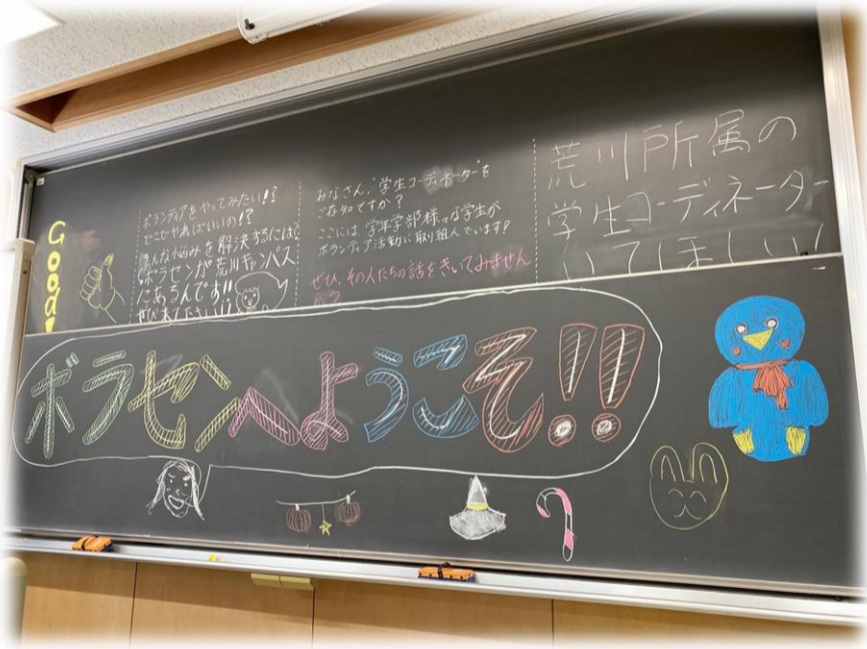 Good!
ボランティアをやってみたい!?
どこでやればいいの!?
そんな悩みを解決するには?
ボラセンが荒川キャンパス
にあるんです!!
ぜひ来てください!!
みなさん、"学生コーディネーター"を
ご存知ですか?
ここには、学年学部様々な学生が
ボランティア活動に取り組んでいます!
ぜひ、その人たちの話をきいてみません
か?
荒川所属の
学生コーディネーター
いてほしい!
ボラセンへようこそ!!